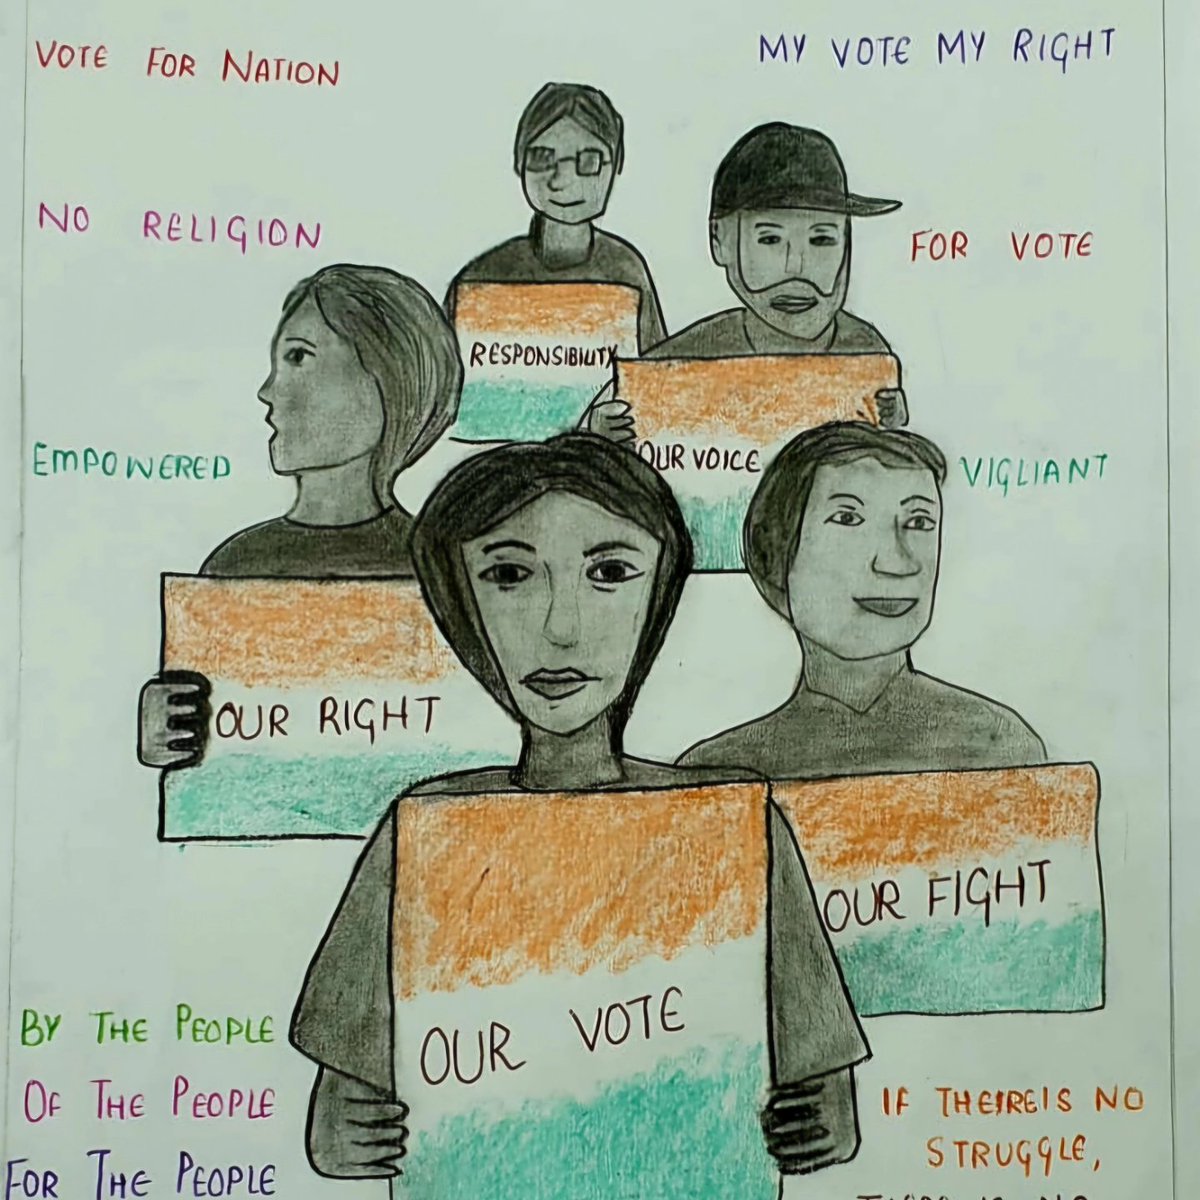 VOTE FOR NATION
MY VOTE MY RIGHT
NO RELIGION
FOR VOTE
RESPONSIBILITY
EMPOWERED
OUR VOICE
VIGLIANT
OUR RIGHT
OUR FIGHT
OUR VOTE
BY THE PEOPLE
OF THE PEOPLE
FOR THE PEOPLE
IF THEIREIS NO
STRUGGLE,